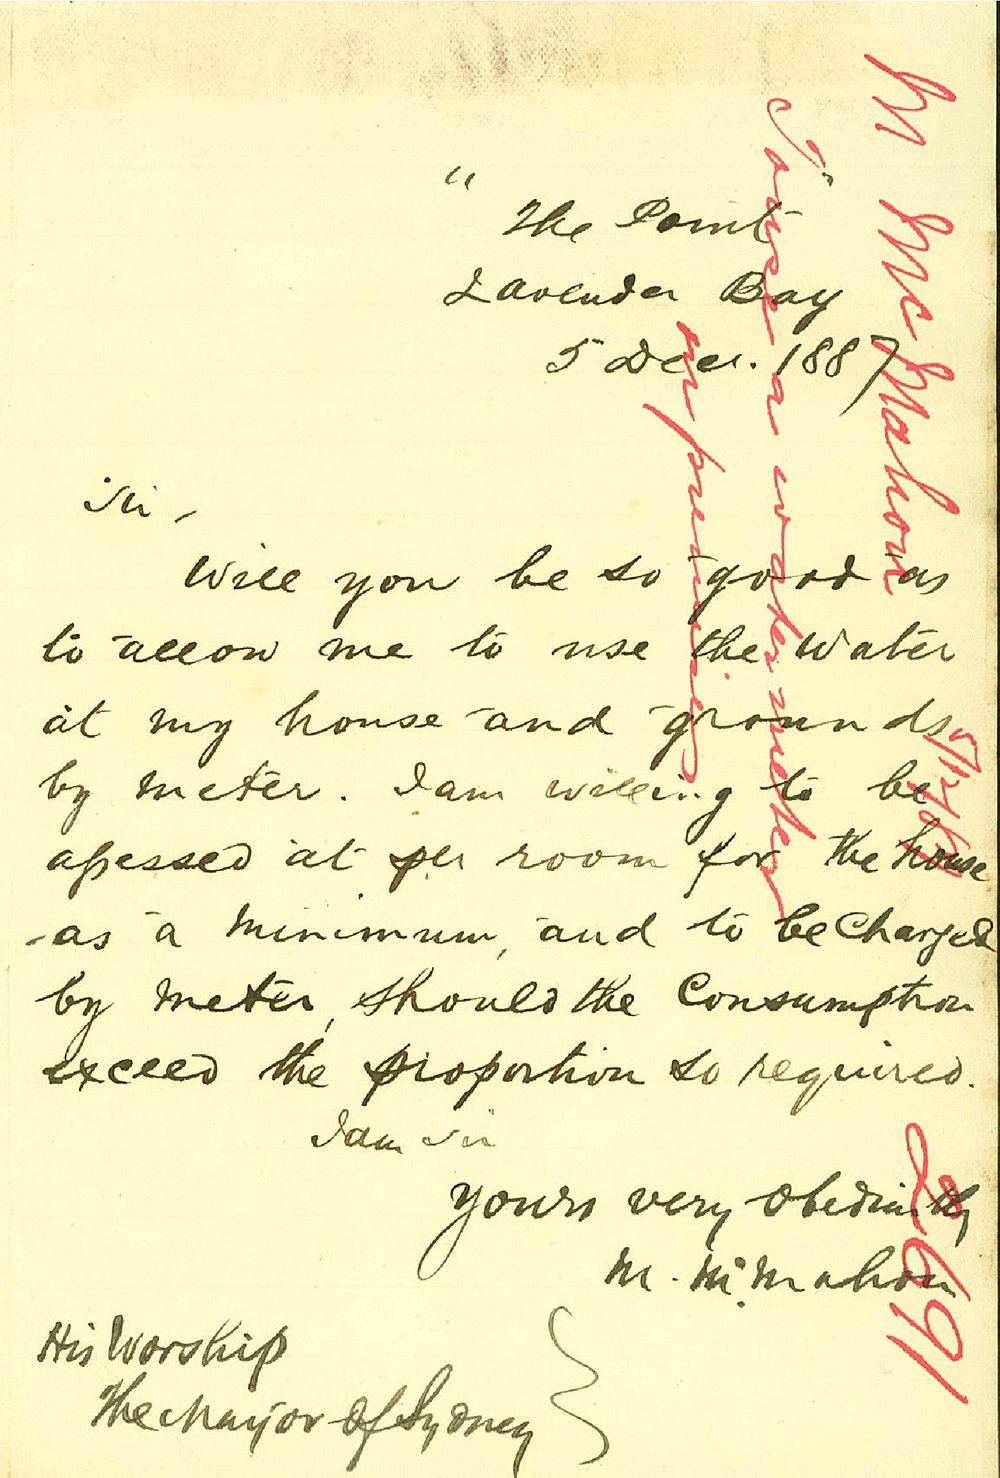 "The Point"
Lavender Bay
5 Decr. 1887
Sir,
Will you be so good as
to allow me to use the water
at my house and grounds
by meter. I am willing to be
assessed at per room for the house
as a minimum, and to be charged
by meter, should the Consumption
exceed the proportion so required.
I am Sir
Yours very obediently
M. McMahon
His Worship
The Mayor of Sydney
M McMahon
To use a water meter
on premises
5/12/87
2691